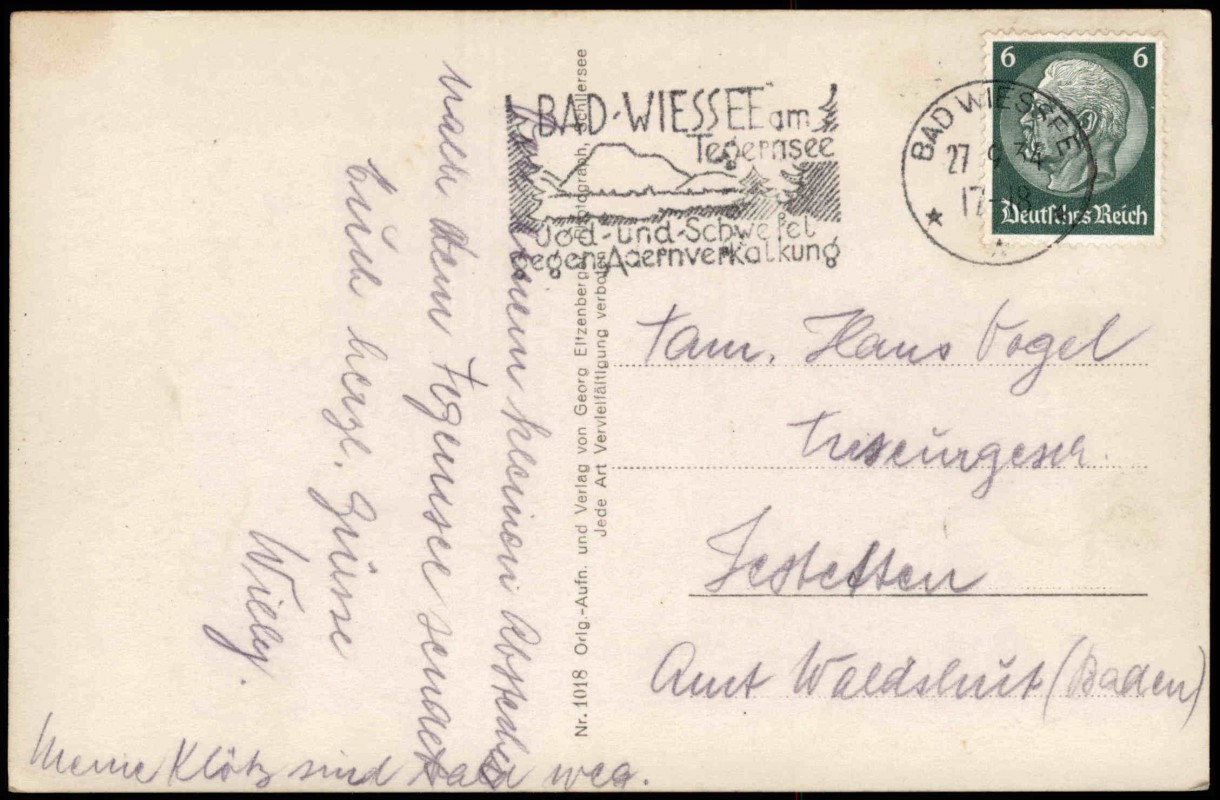 BAD-WIESSEE am
Tegernsee
Jod-und-Schwefel
gegen Adernverkalkung
BAD WIESSEE
27 9 34
17-18
6 6
Deutsches Reich
Von einem kleinen Abstecher
nach dem Tegernsee sendet
Euch herzl. Grüsse
Willy.
Meine Klötz sind bald weg.
Nr. 1018 Orig.-Aufn. und Verlag von Georg Eitzenberger, Photograph, Schliersee
Jede Art Vervielfältigung verboten
Fam. Hans Vogel
Friseurgesch.
Jestetten
Amt Waldshut (Baden)